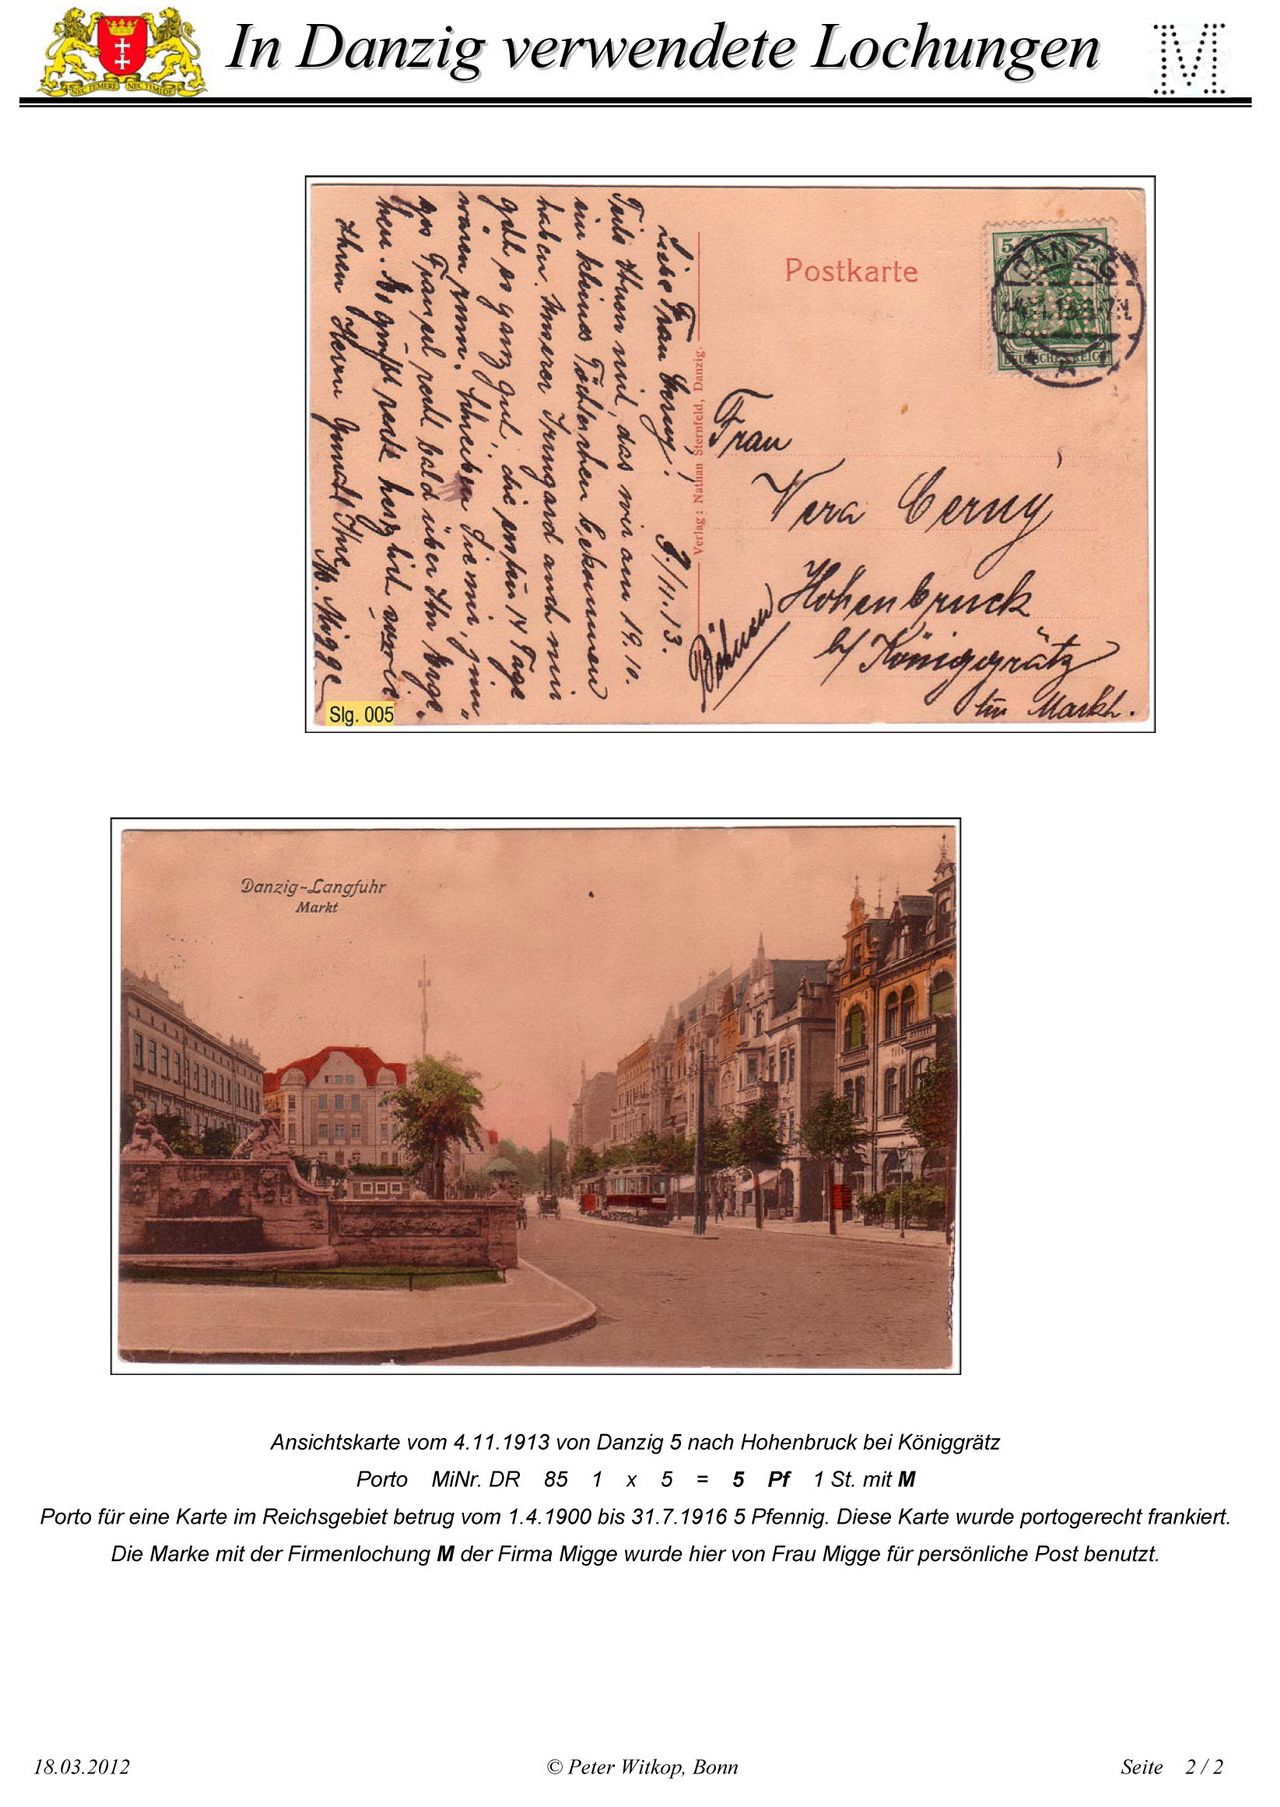 In Danzig verwendete Lochungen
M
NEC TEMERE NEC TIMIDE
Postkarte
5 5
DANZIG
DEUTSCHES REICH
Verlag: Nathan Sternfeld, Danzig.
Frau
Vera Cerny
Hohenbruck
b/ Königgrätz
Böhmen
Markh.
Liebe Frau Cerny! 9./11.13.
Teile Ihnen mit, das wir am 19.10.
ein kleines Töchterchen bekommen
haben. Unserer Irmgard auch mir
geht es ganz gut, die ersten 14 Tage
waren
Schreiben Sie mir,
recht bald über Ihr
hen. recht herzlich
Ihren Herrn Gemahl Ihre
M. Migge.
Slg. 005
Danzig-Langfuhr
Markt
Ansichtskarte vom 4.11.1913 von Danzig 5 nach Hohenbruck bei Königgrätz
Porto MiNr. DR 85 1 x 5 = 5 Pf 1 St. mit M
Porto für eine Karte im Reichsgebiet betrug vom 1.4.1900 bis 31.7.1916 5 Pfennig. Diese Karte wurde portogerecht frankiert.
Die Marke mit der Firmenlochung M der Firma Migge wurde hier von Frau Migge für persönliche Post benutzt.
18.03.2012 © Peter Witkop, Bonn Seite 2 / 2